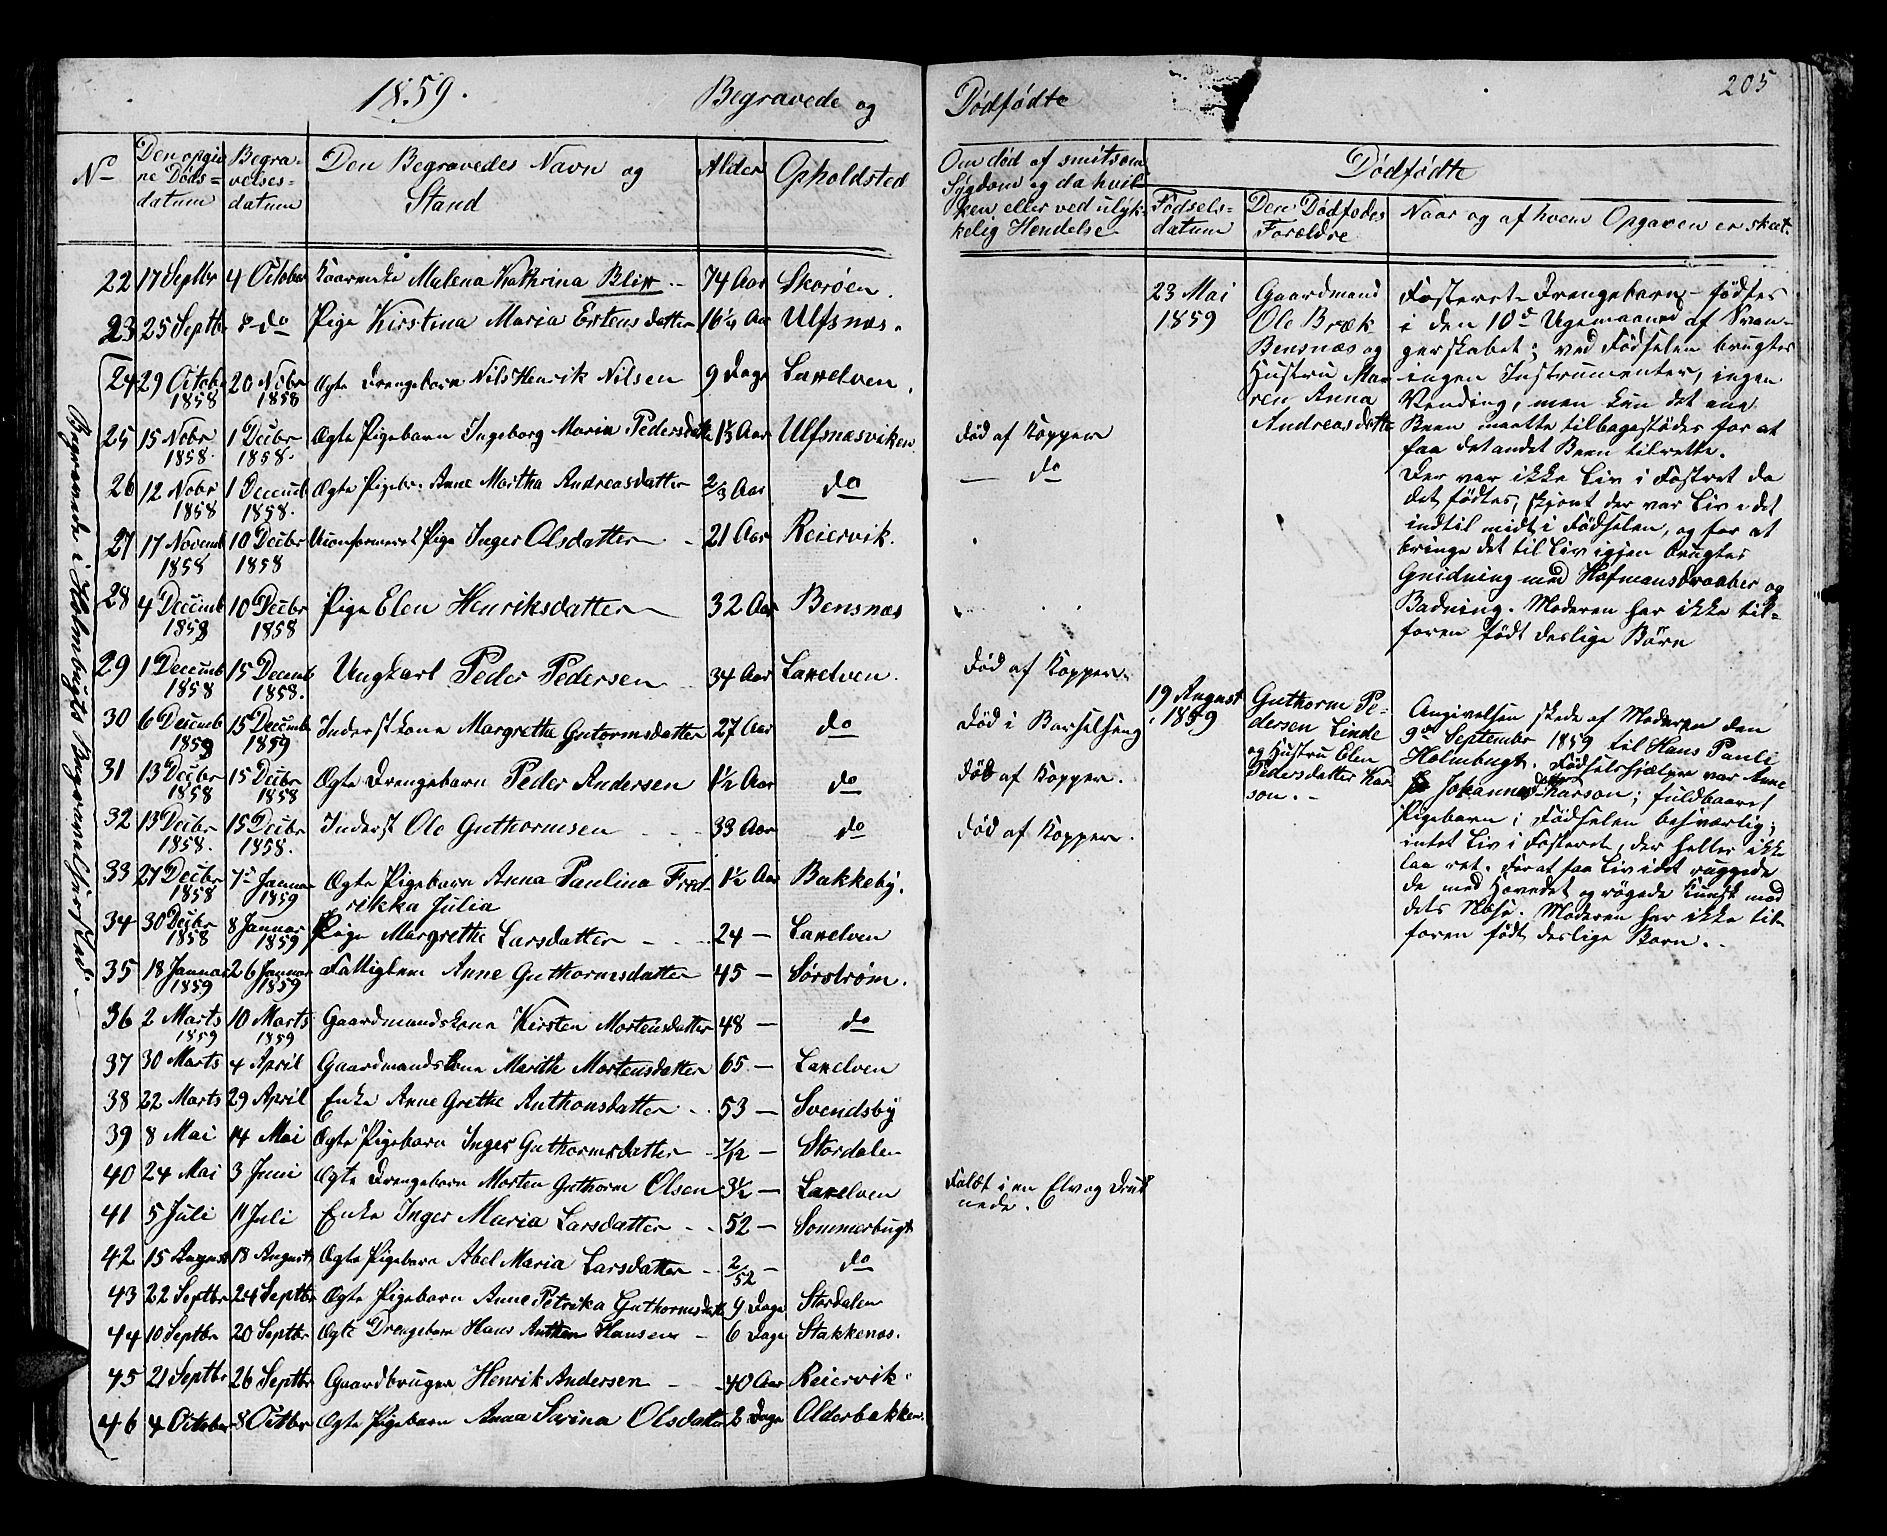 1859.
Begravede og
Nº
Den opgiv-
ne Døds-
datum
Begra-
velses-
datum
Den Begravedes Navn og
Stand
Alder
Opholdsted
22 17 Septbr 4 October Kaarenke Malena Kathrina Blix 74 Aar Skorøen.
23 25 Septb 8 do Pige Kirstina Maria Ertensdatter 16¼ Aar Ulfsnæs.
Begravede i Holmbugts Begravelsessted
24 29 Octob 1858 20 Nobr 1858 Ægte Drengebarn Nils Henrik Nilsen 9 Dage Lanelven.
25 15 Nobr 1858. 1 Decbr 1858. Ægte Pigebarn Ingeborg Maria Pedersdatter 1⅓ Aar Ulfsnæsviken
26 12 Nobr 1858 1 Decemb 1858. Ægte Pigeb. Anne Martha Andreasdatter ⅔ Aar do
27 17 Novemb 1858 10 Decbr 1858 Uconfirmeret Pige Inger Olsdatter 21 Aar Reiervik.
28 4 Decemb 1858 10 Decbr 1858 Pige Elen Henriksdatter 32 Aar Bensnæs
29 1 Decemb 1858 15 Decemb 1858. Ungkarl Peder Pedersen 34 Aar Lanelven.
30 6 Decemb 1859 15 Decemb 1859 Inderstkone Margrethe Gutormsdatter 27 Aar do
31 13 Decbr 1858 15 Decbr 1858 Ægte Drengebarn Peder Andersen 1½ Aar do
32 13 Decbr 1858. 15 Decbr 1858. Inderst Ole Guthormsen 33 Aar do
33 27 Decbr 1858 7de Januar 1859 Ægte Pigebarn Anna Paulina Fred- 1½ Aar Bakkeby.
rikka Julia
34 30 Decbr 1858 8 Januar 1859 Pige Margrethe Larsdatter 24 — Lanelven
35 18 Januar 1859 26 Januar 1859 Fattiglem Anne Guthormsdatter 45 — Sørstrøm.
36 2 Marts 1859 10 Marts 1859 Gaardmandskone Kirsten Mortensdatter 48 — do
37 30 Marts 4 April Gaardmandskone Marith Mortensdatter 65 — Lanelven
38 22 Marts 29 April Enke Anne Grethe Anthonsdatter 53 — Svendsby
39 8 Mai 14 Mai Ægte Pigebarn Inger Guthormsdatter 7/12 — Stordalen
40 24 Mai 3 Juni Ægte Drengebarn Morten Guthorm Olsen 3½ — Lanelven
41 5 Juli 11 Juli Enke Inger Maria Larsdatter 52 — Sommerbugt
42 15 August 18 August Ægte Pigebarn Abel Maria Larsdatter 2/52 — do
43 22 Septbr 24 Septbr Ægte Pigebarn Anne Petrika Guthormsdatt 9 Dage Stordalen
44 10 Septbr 20 Septbr Ægte Drengebarn Hans Anthon Hansen 6 Dage Stakkenæs.
45 21 Septbr 26 Septbr Gaardbruger Henrik Andersen 40 Aar Reiervik.
46 4 October 8 Octbr Ægte Pigebarn Anna Serina Olsdatter 2 Dage Olderbakken.
Dødfødte
205
Om død af smitsom
Sygdom og da hvil-
ken eller ved ulyk-
kelig Hendelse
Dødfødte
Fødsels-
datum
Den Dødfødes
Forældre
Naar og af hvem Opgaven er skeet.
Død af Kopper
— do
Død af Kopper.
Død i Barselseng
Død af Kopper.
Død af Kopper.
Faldt i en Elv og Druk-
nede.
23 Mai
1859
Gaardmand
Ole Bræk
Bensnæs og
Hustru Ma-
ren Anna
Andreasdatter
Fosteret - Drengebarn - fødtes
i den 10de Ugemaaned af Svan-
gerskabet; ved Fødselen brugtes
ingen Instrumenter, ingen
Vending, men kun det ene
Been maatte tilbagestødes for at
faa det andet Been tilrette.
Der var ikke Liv i Fostret da
det fødtes, skjønt der var Liv i det
indtil midt i Fødselen, og for at
bringe det til Liv igjen brugtes
Gnidning med Hofmansdraaber og
Badning. Moderen har ikke til-
foren født deslige Børn
19 August
1859
Guthorm Pe-
dersen Linde
og Hustru Elen
Pedersdatter Kar-
son.
Angivelsen skede af Moderen den
9de September 1859 til Hans Pauli
Holmbugt. Fødselshjælper var Anne
Johannesdatter Karson; fuldbaaret
Pigebarn; Fødselen besværlig;
intet Liv i Fosteret, der heller ikke
laa ret. For at faa Liv i det ruggede
de med Hovedet og røgede Kunst med
dets Næse. Moderen har ikke til-
foren født deslige Barn.